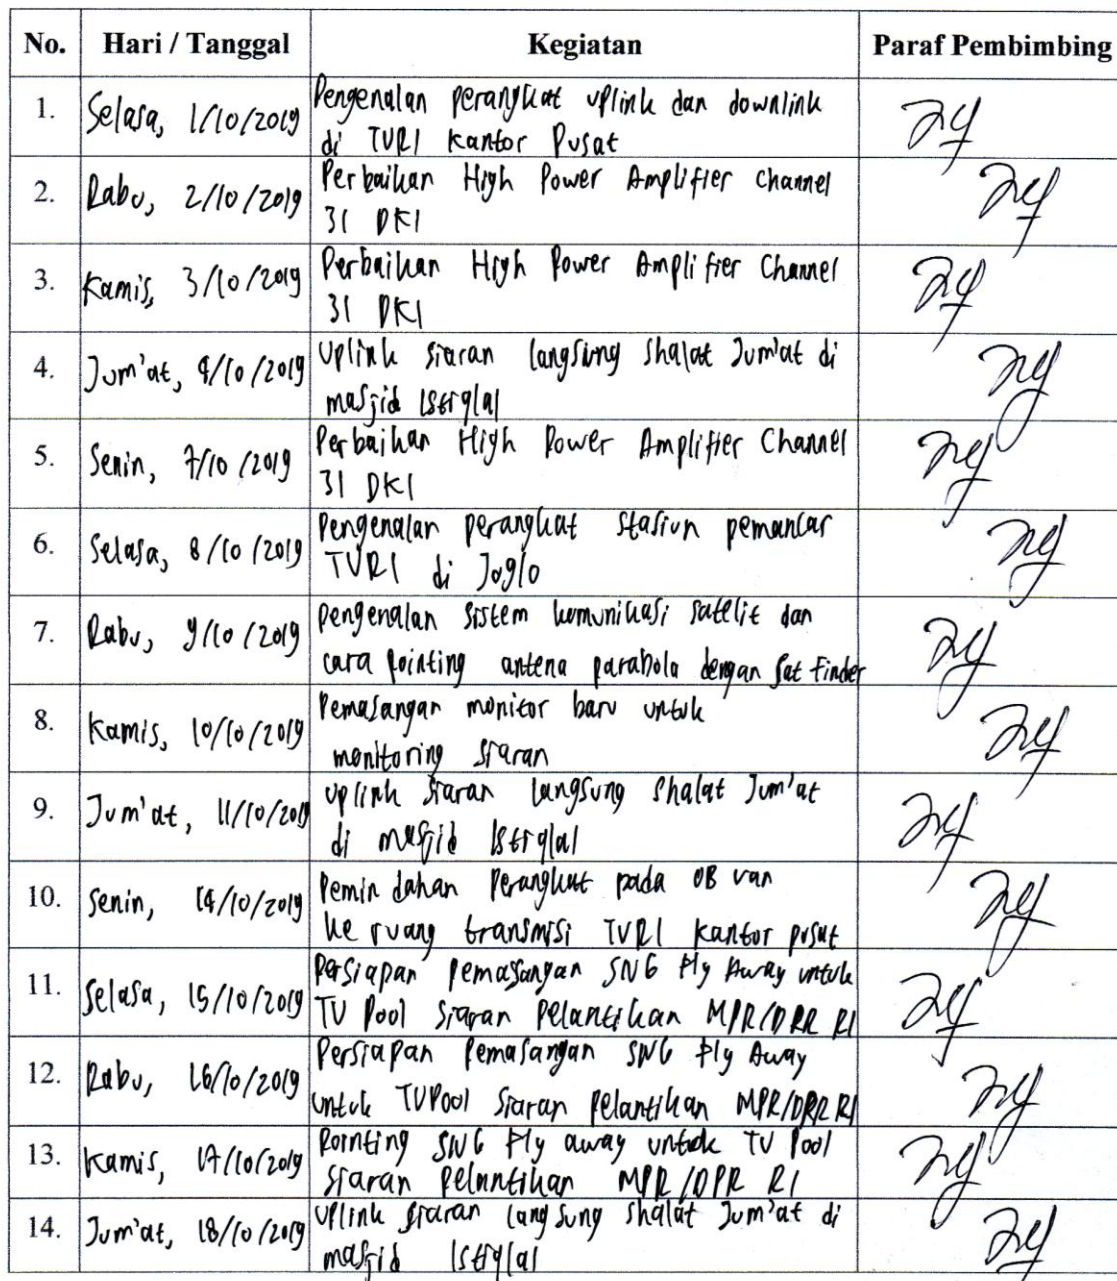 No. Hari / Tanggal Kegiatan Paraf Pembimbing
1. Selasa, 1/10/2019 Pengenalan perangkat uplink dan downlink
di TVRI Kantor Pusat
2. Rabu, 2/10/2019 Perbaikan High Power Amplifier Channel
31 DKI
3. Kamis, 3/10/2019 Perbaikan High Power Amplifier Channel
31 DKI
4. Jum'at, 4/10/2019 Uplink siaran langsung shalat Jum'at di
masjid Istiqlal
5. Senin, 7/10/2019 Perbaikan High Power Amplifier Channel
31 DKI
6. Selasa, 8/10/2019 Pengenalan perangkat stasiun pemancar
TVRI di Joglo
7. Rabu, 9/10/2019 Pengenalan sistem komunikasi satelit dan
cara pointing antena parabola dengan Sat Finder
8. Kamis, 10/10/2019 Pemasangan monitor baru untuk
monitoring siaran
9. Jum'at, 11/10/2019 Uplink siaran langsung shalat Jum'at
di masjid Istiqlal
10. Senin, 14/10/2019 Pemindahan Perangkat pada OB van
ke ruang transmisi TVRI Kantor pusat
11. Selasa, 15/10/2019 Persiapan Pemasangan SNG Fly Away untuk
TV Pool Siaran Pelantikan MPR/DPR RI
12. Rabu, 16/10/2019 Persiapan Pemasangan SNG Fly Away
untuk TVPool Siaran Pelantikan MPR/DPR RI
13. Kamis, 17/10/2019 Pointing SNG Fly away untuk TV Pool
Siaran Pelantikan MPR/DPR RI
14. Jum'at, 18/10/2019 Uplink siaran langsung shalat Jum'at di
masjid Istiqlal